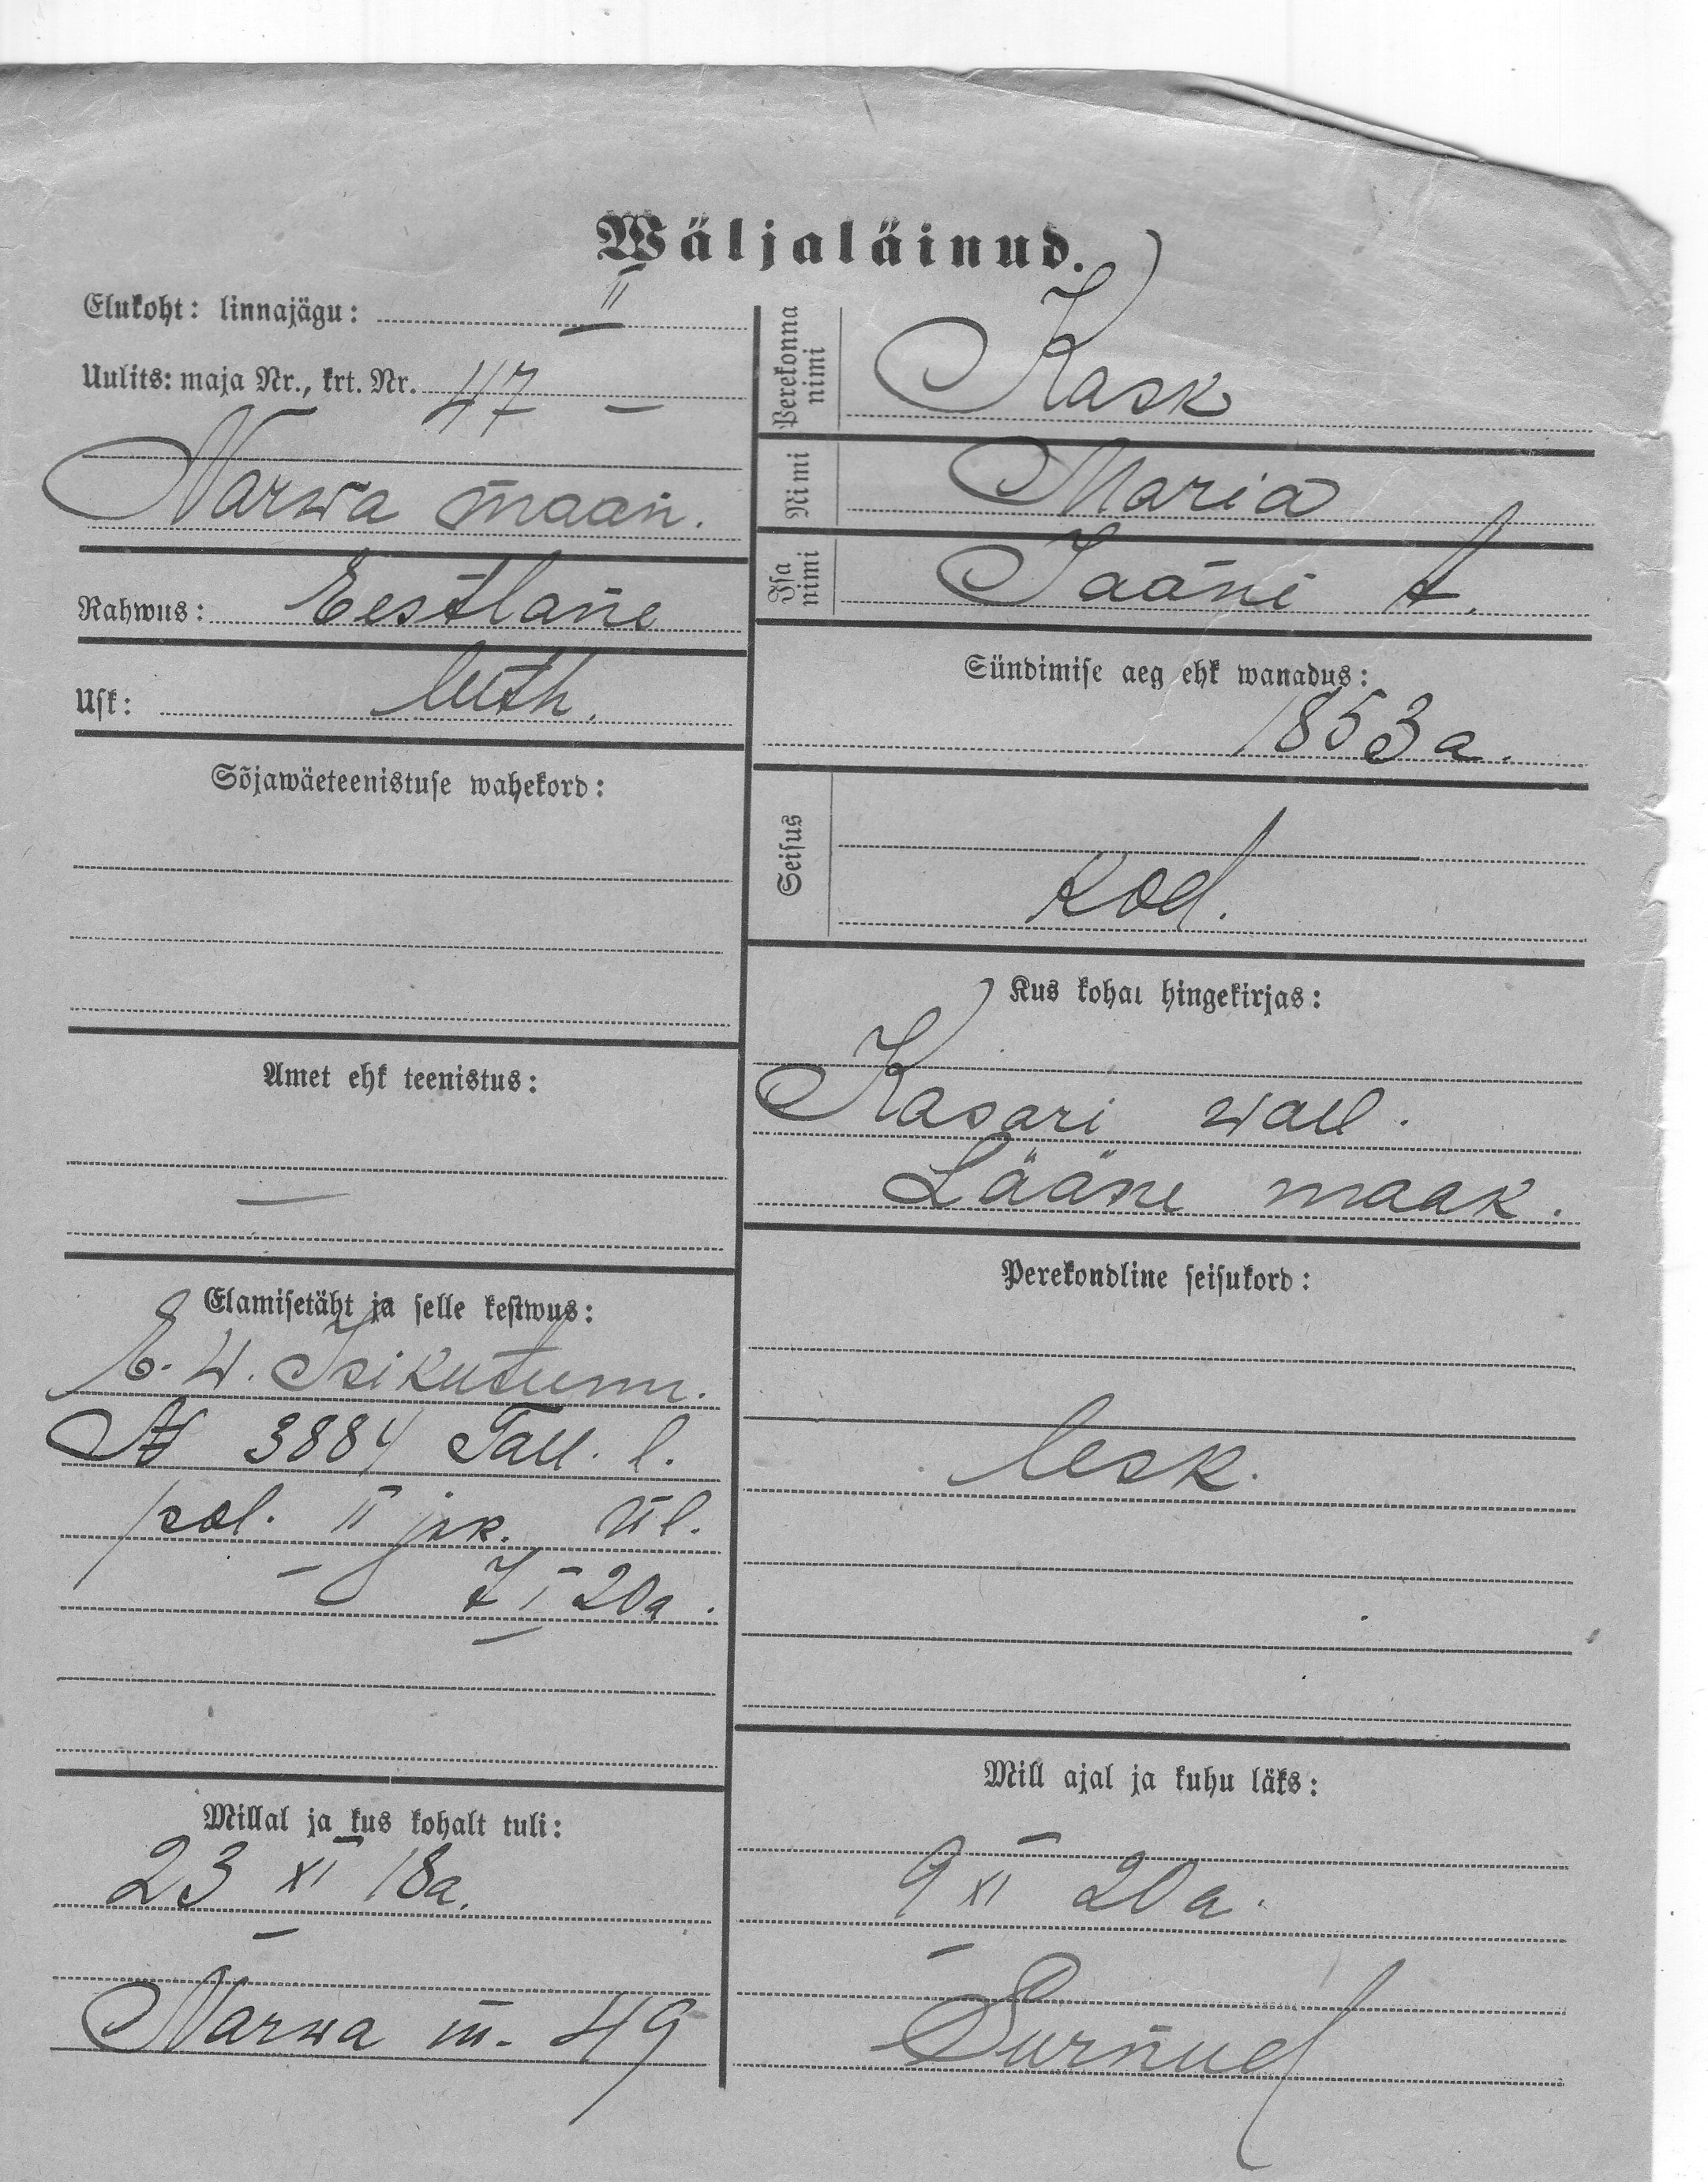 Wäljaläinud.
Elukoht: linnajägu: II
Uulits: maja Nr., krt. Nr. 47 —
Narwa maan.
Rahwus: Eestlane
Usk: luth.
Sõjawäeteenistuse wahekord:
Amet ehk teenistus:
—
Elamisetäht ja selle kestwus:
E. W. Isikutunn.
№ 3884 Tall. l.
pol. II jsk. ül.
7 I 20a.
Millal ja kus kohalt tuli:
23 XI 18a.
Narwa m. 49
Perekonna nimi Kask
Nimi Maria
Isa nimi Jaani t.
Sündimise aeg ehk wanadus:
1853 a.
Seisus
kod.
Kus kohal hingekirjas:
Kasari wall.
Lääne maak.
Perekondline seisukord:
lesk.
Mill ajal ja kuhu läks:
9 XI 20 a.
Surnud